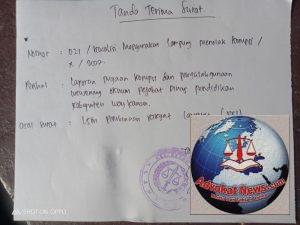 Tanda Terima Surat.
Nomor : 021 / Koalisi Masyarakat Lampung menolak korupsi /
X /
Perihal : Laporan dugaan korupsi dan penyalahgunaan
wewenang oknum pejabat Dinas pendidikan
kabupaten way kanan.
Asal Surat : LSM Pembinaan Rakyat
Advokat News.com
SHOT ON OPPO